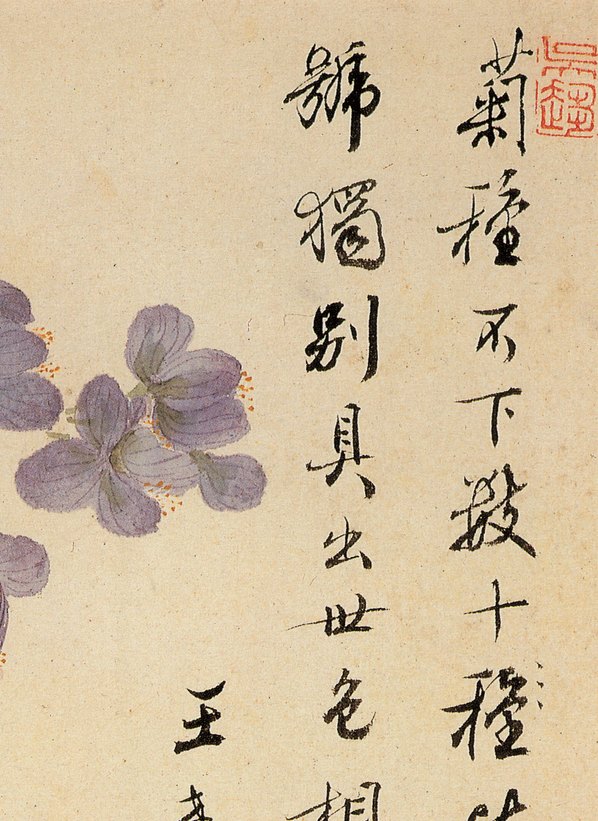 菊種不下數十種
號獨別具出世色相
王